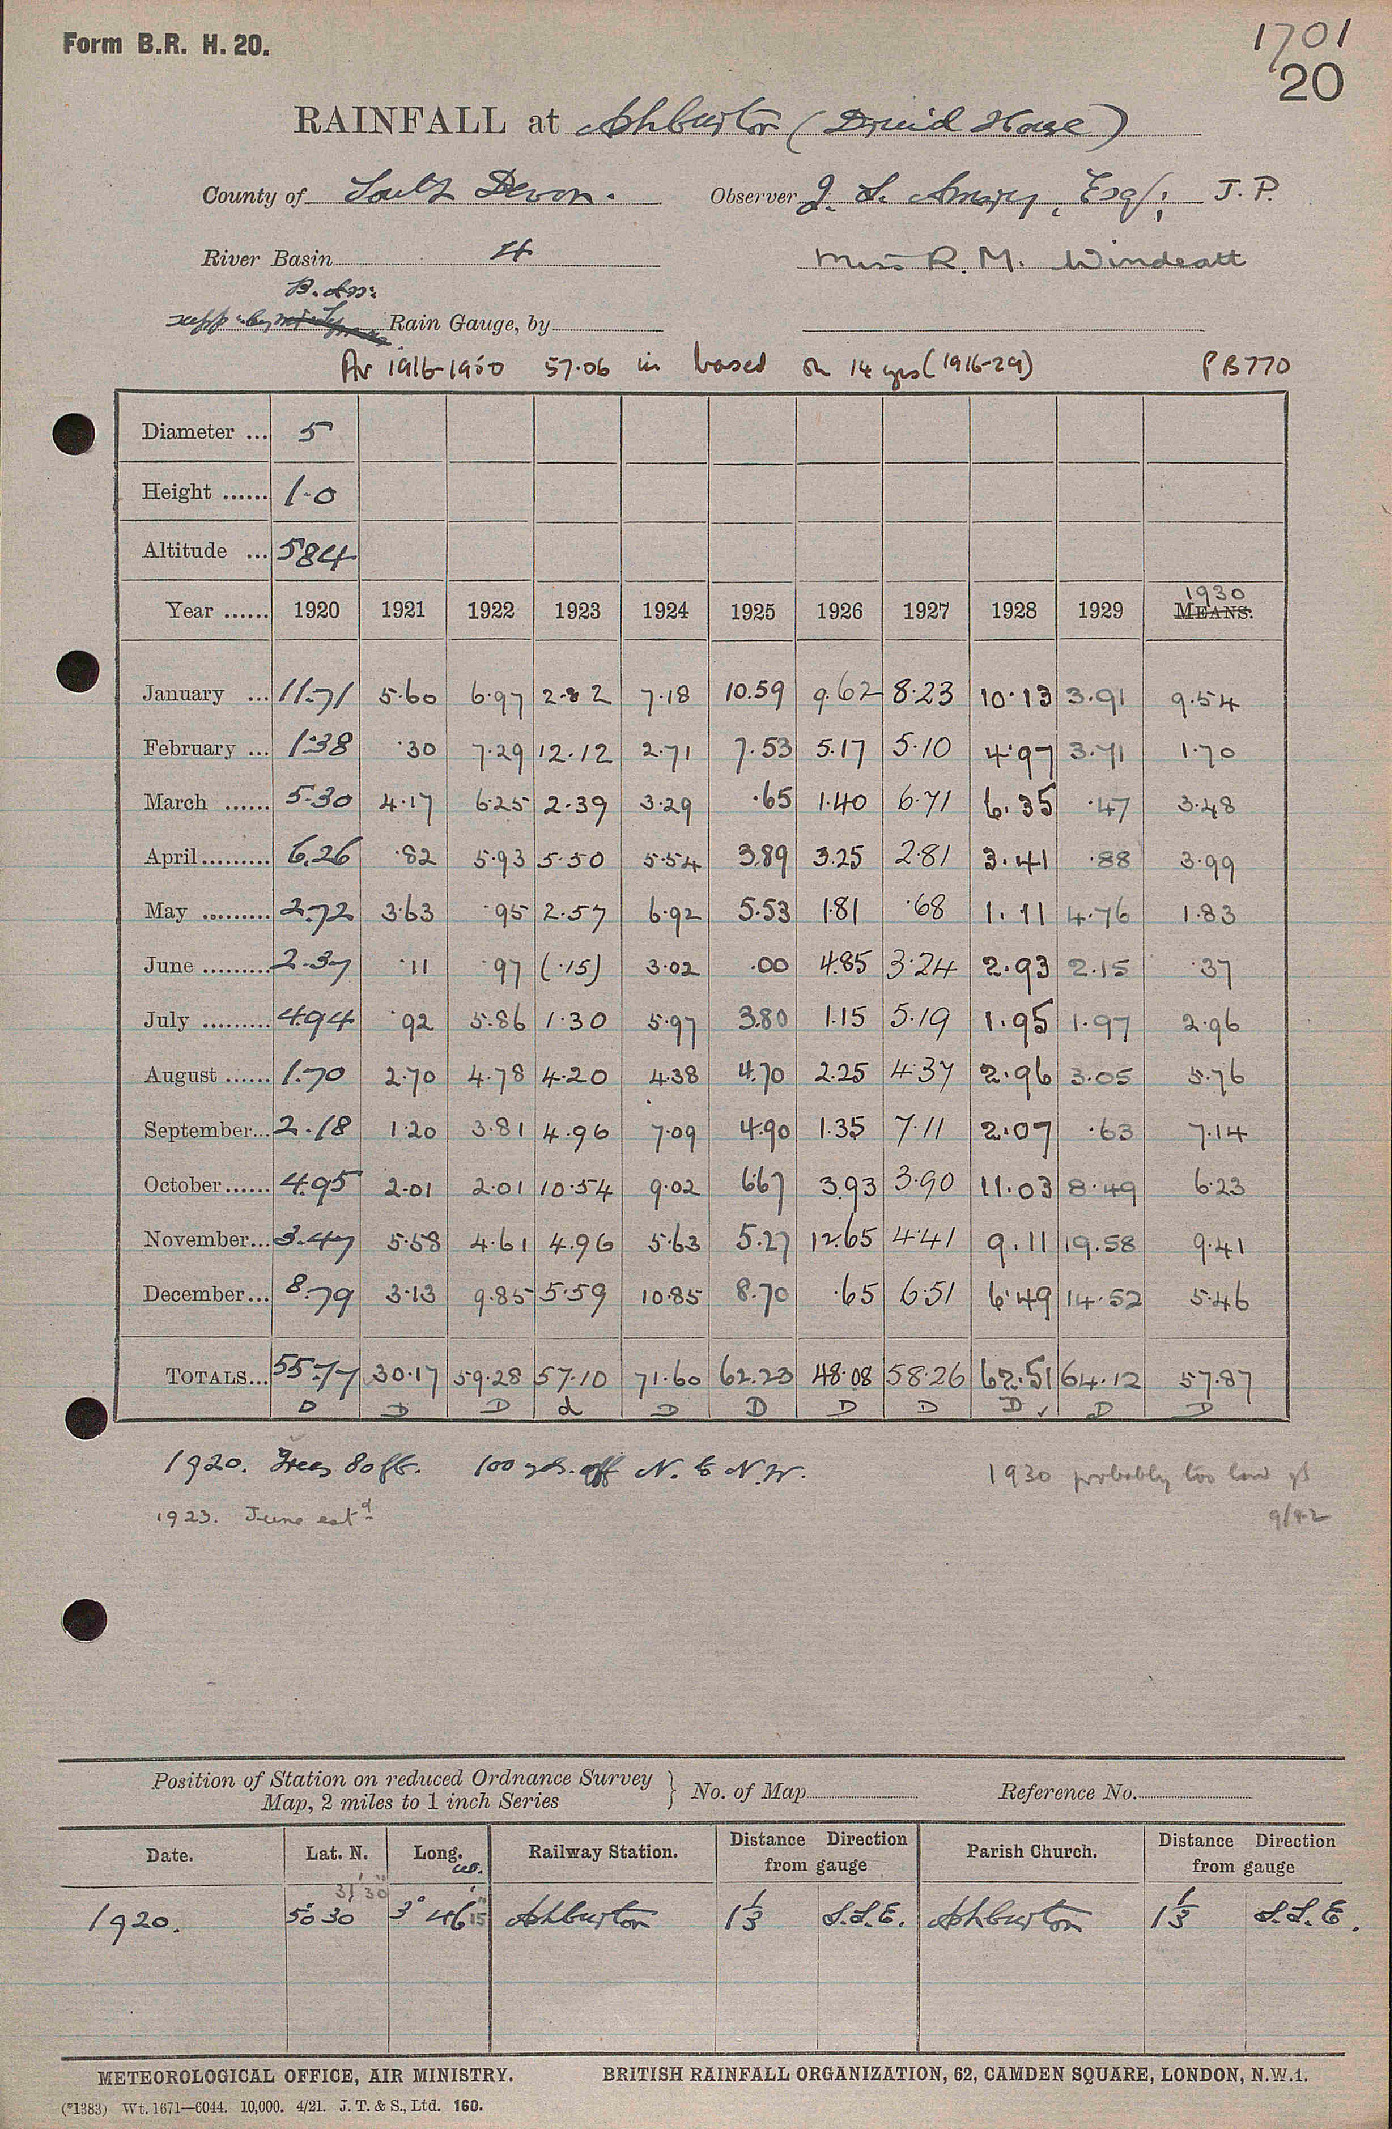 Form B.R. H. 20.
1701
20
RAINFALL at Ashburton (Druid House)
County of South Devon. Observer J. S. Amery, Esq; J.P.
River Basin 4 Miss R. M. Windeatt
B. Ass:
Rain Gauge, by
Av 1916-1950 57.06 in based on 14 yrs (1916-29) PB770
Diameter ... 5
Height ...... 1.0
Altitude ... 584
1930
Year ...... 1920 1921 1922 1923 1924 1925 1926 1927 1928 1929 MEANS.
January ... 11.71 5.60 6.97 2.82 7.18 10.59 9.62 8.23 10.13 3.91 9.54
February ... 1.38 .30 7.29 12.12 2.71 7.53 5.17 5.10 4.97 3.71 1.70
March ...... 5.30 4.17 6.25 2.39 3.29 .65 1.40 6.71 6.35 .47 3.48
April ......... 6.26 .82 5.93 5.50 5.54 3.89 3.25 2.81 3.41 .88 3.99
May ......... 2.72 3.63 .95 2.57 6.92 5.53 1.81 .68 1.11 4.76 1.83
June ......... 2.37 .11 .97 (.15) 3.02 .00 4.85 3.24 2.93 2.15 .37
July ......... 4.94 .92 5.86 1.30 5.97 3.80 1.15 5.19 1.95 1.97 2.96
August ...... 1.70 2.70 4.78 4.20 4.38 4.70 2.25 4.37 2.96 3.05 5.76
September... 2.18 1.20 3.81 4.96 7.09 4.90 1.35 7.11 2.07 .63 7.14
October ...... 4.95 2.01 2.01 10.54 9.02 6.67 3.93 3.90 11.03 8.49 6.23
November... 3.47 5.58 4.61 4.96 5.63 5.27 12.65 4.41 9.11 19.58 9.41
December... 8.79 3.13 9.85 5.59 10.85 8.70 .65 6.51 6.49 14.52 5.46
TOTALS... 55.77 30.17 59.28 57.10 71.60 62.23 48.08 58.26 62.51 64.12 57.87
D D D d D D D D D ✓ D D
1920. Trees 80ft. 100 yds. off N. & N.W.
1930 probably too low
1923. June estd
9/42
Position of Station on reduced Ordnance Survey
Map, 2 miles to 1 inch Series } No. of Map Reference No.
Date. Lat. N. Long. W. Railway Station. Distance Direction from gauge Parish Church. Distance Direction from gauge
31' 30"
1920. 50° 30 3° 46' 15" Ashburton 1⅓ S.S.E. Ashburton 1⅓ S.S.E.
METEOROLOGICAL OFFICE, AIR MINISTRY. BRITISH RAINFALL ORGANIZATION, 62, CAMDEN SQUARE, LONDON, N.W.1.
(*1383) Wt. 1671—6044. 10,000. 4/21. J. T. & S., Ltd. 160.